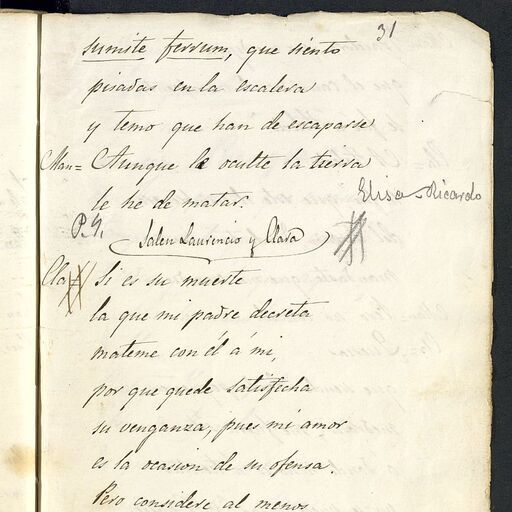 31
sumite ferrum, que siento
pisadas en la escalera
y temo que han de escaparse
Man= Aunque le oculte la tierra
le he de matar.
Elisa - Ricardo
P. Y.
Salen Laurencio y Clara
Cla= Si es su muerte
la que mi padre decreta
mateme con él á mi,
por que quede satisfecha
su venganza, pues mi amor
es la ocasion de su ofensa.
Pero considere al menos